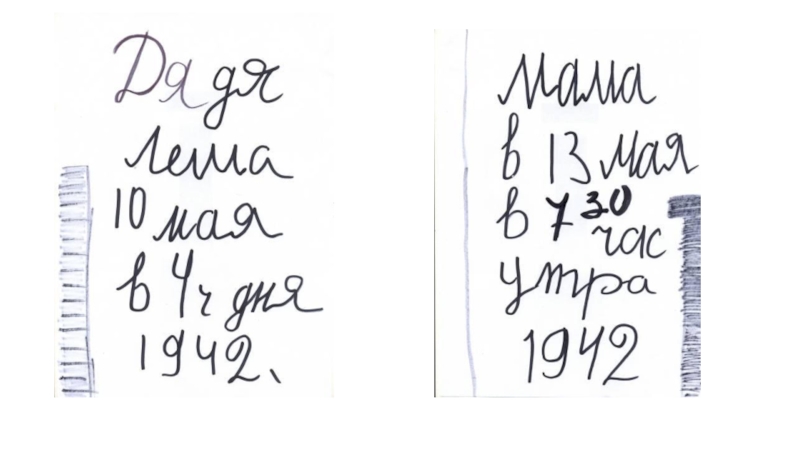 Дядя
Леша
10 мая
в 4ч дня
1942.
Мама
в 13 мая
в 7 30
час
утра
1942